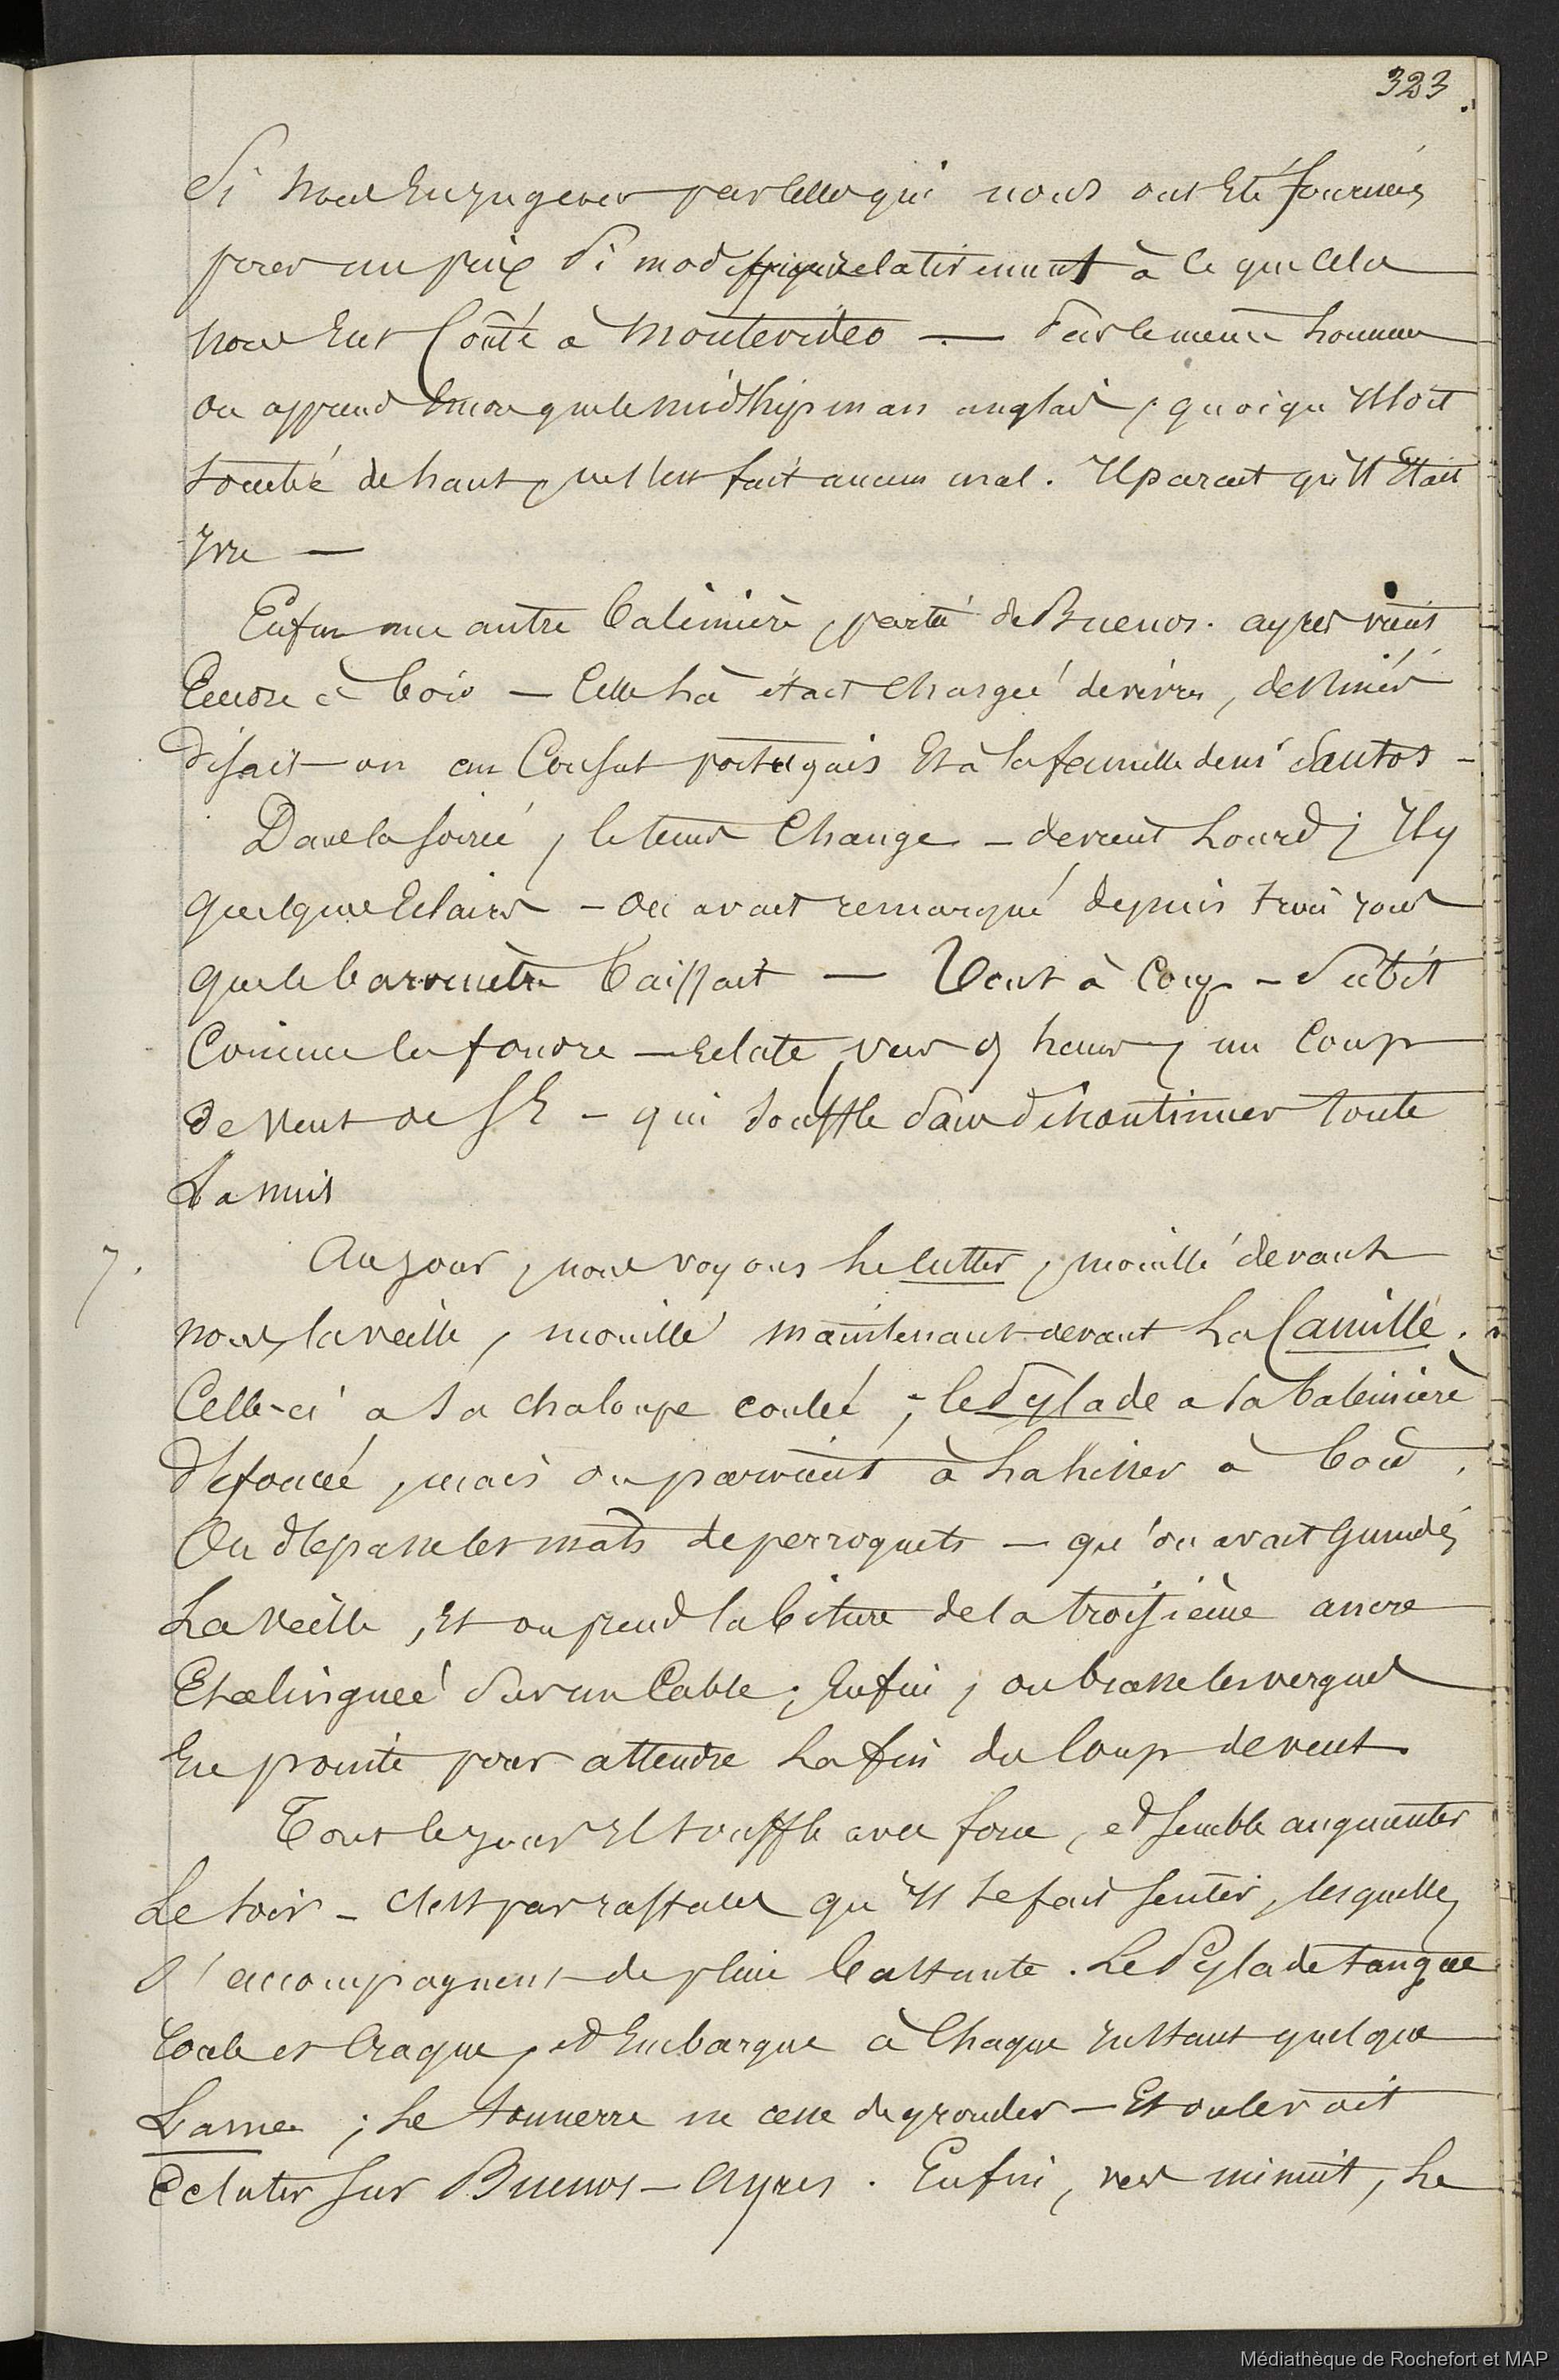 323.
Si nous en jugeons par celles qui nous ont été fournies
pour un prix si modique relativement à ce que cela
nous eut Coûté à Montevideo — Par le même homme
on apprend Encore que le midshipman anglais, quoiqu'il soit
tombé de haut, ne s'est fait aucun mal. Il parait qu'il Etait
yvre —
Enfin une autre baleinière, partie de Buenos-ayres vient
Encore à bord — Celle là était chargée de vivres, destinés
disait-on au Consul portugais Et à la famille de Santos —
Dans la soirée, le tems Change — devient Lourd; Il y
quelques Eclairs — On avait remarqué depuis trois jours
que le baromètre baissait — Tout à Coup — Subit
Comme la foudre — Eclate, vers 9 heures, un Coup
de Vent de SE — qui souffle sans discontinuer toute
La nuit
7. Au jour, nous voyons le cutter, mouillé devant
nous, la veille, mouillé maintenant devant La Camille.
Celle-ci a sa chaloupe coulée; le Pylade a sa baleinière
défoncée, mais on parvient à la hisser à bord.
On dépasse les mâts de perroquets — qu'on avait Guindés
La Veille, Et on prend la biture de la troisième ancre
Etalinguée Sur un Cable; Enfin, on brasse les vergues
En pointe pour attendre La fin du Coup de vent.
Tout le jour Il souffle avec force, et semble augmenter
Le soir — C'est par raffales qu'Il se fait sentir, lesquelles
S'accompagnent de pluie battante. Le Pylade tangue
roule et Craque, et Embarque à Chaque Instant quelque
Lame; Le tonnerre ne cesse de gronder — Et on le voit
Eclater sur Buenos-Ayres. Enfin, vers minuit, Le
Médiathèque de Rochefort et MAP